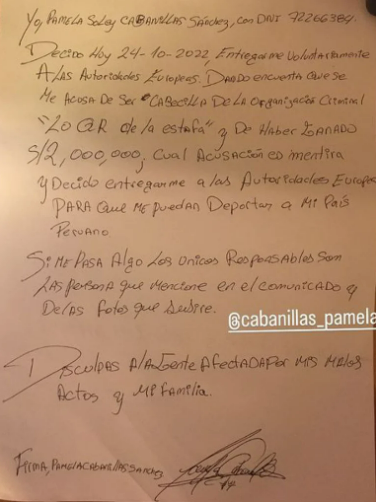 Yo, PAMELA Soley CABANILLAS Sánchez, con DNI 72266384.
Decido Hoy 24-10-2022, Entregarme Voluntariamente
A las Autoridades Europeas. DANDO encuenta que se
Me Acusa De Ser "CABECILLA De LA Organización Criminal
"LO QR de la estafa" y De Haber GANADO
S/2,000,000, cual Acusación es mentira
y Decido entregarme a las Autoridades Europea
PARA que Me puedan Deportar a Mi País
Peruano
Si Me PASA Algo Los Unicos Responsables son
LAS persona que mencione en el comunicado y
De las fotos que Subire.
@cabanillas_pamela
Disculpas A la Gente AfectADA Por Mis Malos
Actos y Mi Familia.
Firma, Pamela CABANILLAS Sánchez